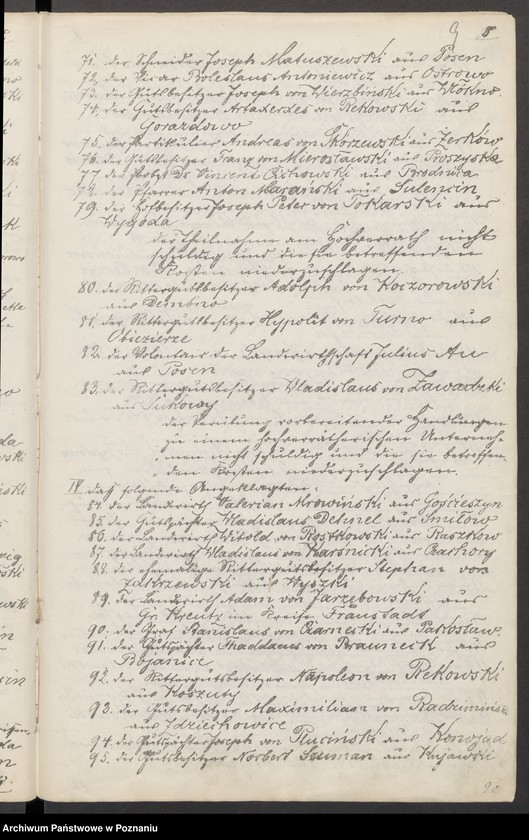 9 8
71. der Schneider Joseph Matuszewski aus Posen
72. der Vicar Boleslaus Antoniewicz aus Ostrowo
73. der Gutsbesitzer Joseph von Wierzbiński aus
74. der Gutsbesitzer Artaxerxes von Rekowski aus
Gorazdowo
75. der Partikulier Andreas von Skórzewski aus Zerków
76. der Gutsbesitzer Franz von Mieroslawski aus
77. der Dr Vincent Cichowski aus Brodnica
78. der Pfarrer Anton Marański aus Sulencin
79. der Joseph Peter von Tokarski aus
Wygoda
der Theilnahme am Hochverrath nicht
schuldig und die sie betreffenden
Kosten niederzuschlagen.
80. der Rittergutsbesitzer Adolph von Koczorowski
aus Dembno
81. der Rittergutsbesitzer Hypolit von Turno aus
Obiezierze
82. der Volontair der Landwirthschaft Julius Au
aus Posen
83. der Rittergutsbesitzer Wladislaus von Zawadzki
aus
der Verübung vorbereitender Handlungen
zu einem hochverrätherischen Unterneh-
men nicht schuldig und die sie betreffen-
den Kosten niederzuschlagen.
IV. daß folgende Angeklagten:
84. der Landwirth Valerian Mrowiński aus Gościeszyn
85. der Gutspächter Wladislaus Dehnel aus Smiłow
86. der Landwirth Witold von Rostkowski aus Raszkow
87. der Landwirth Wladislaus von Karśnicki aus
88. der ehemalige Rittergutsbesitzer Stephan von
Zakrzewski aus Wyszki
89. der Landwirth Adam von Jarzębowski aus
Gr. Kreutz im Kreise Fraustadt
90. der Graf Stanislaus von Czarnecki aus Pakosław
91. der Gutspächter Thaddaeus von Brauneck aus
Bojanice
92. der Rittergutsbesitzer Napoleon von Rekowski
aus Koszuty
93. der Gutsbesitzer Maximilian von Radzimiński
aus Zdziechowice
94. der Gutspächter Joseph von Pluciński aus Konojad
95. der Gutsbesitzer Norbert Szuman aus Kujawki
Archiwum Państwowe w Poznaniu